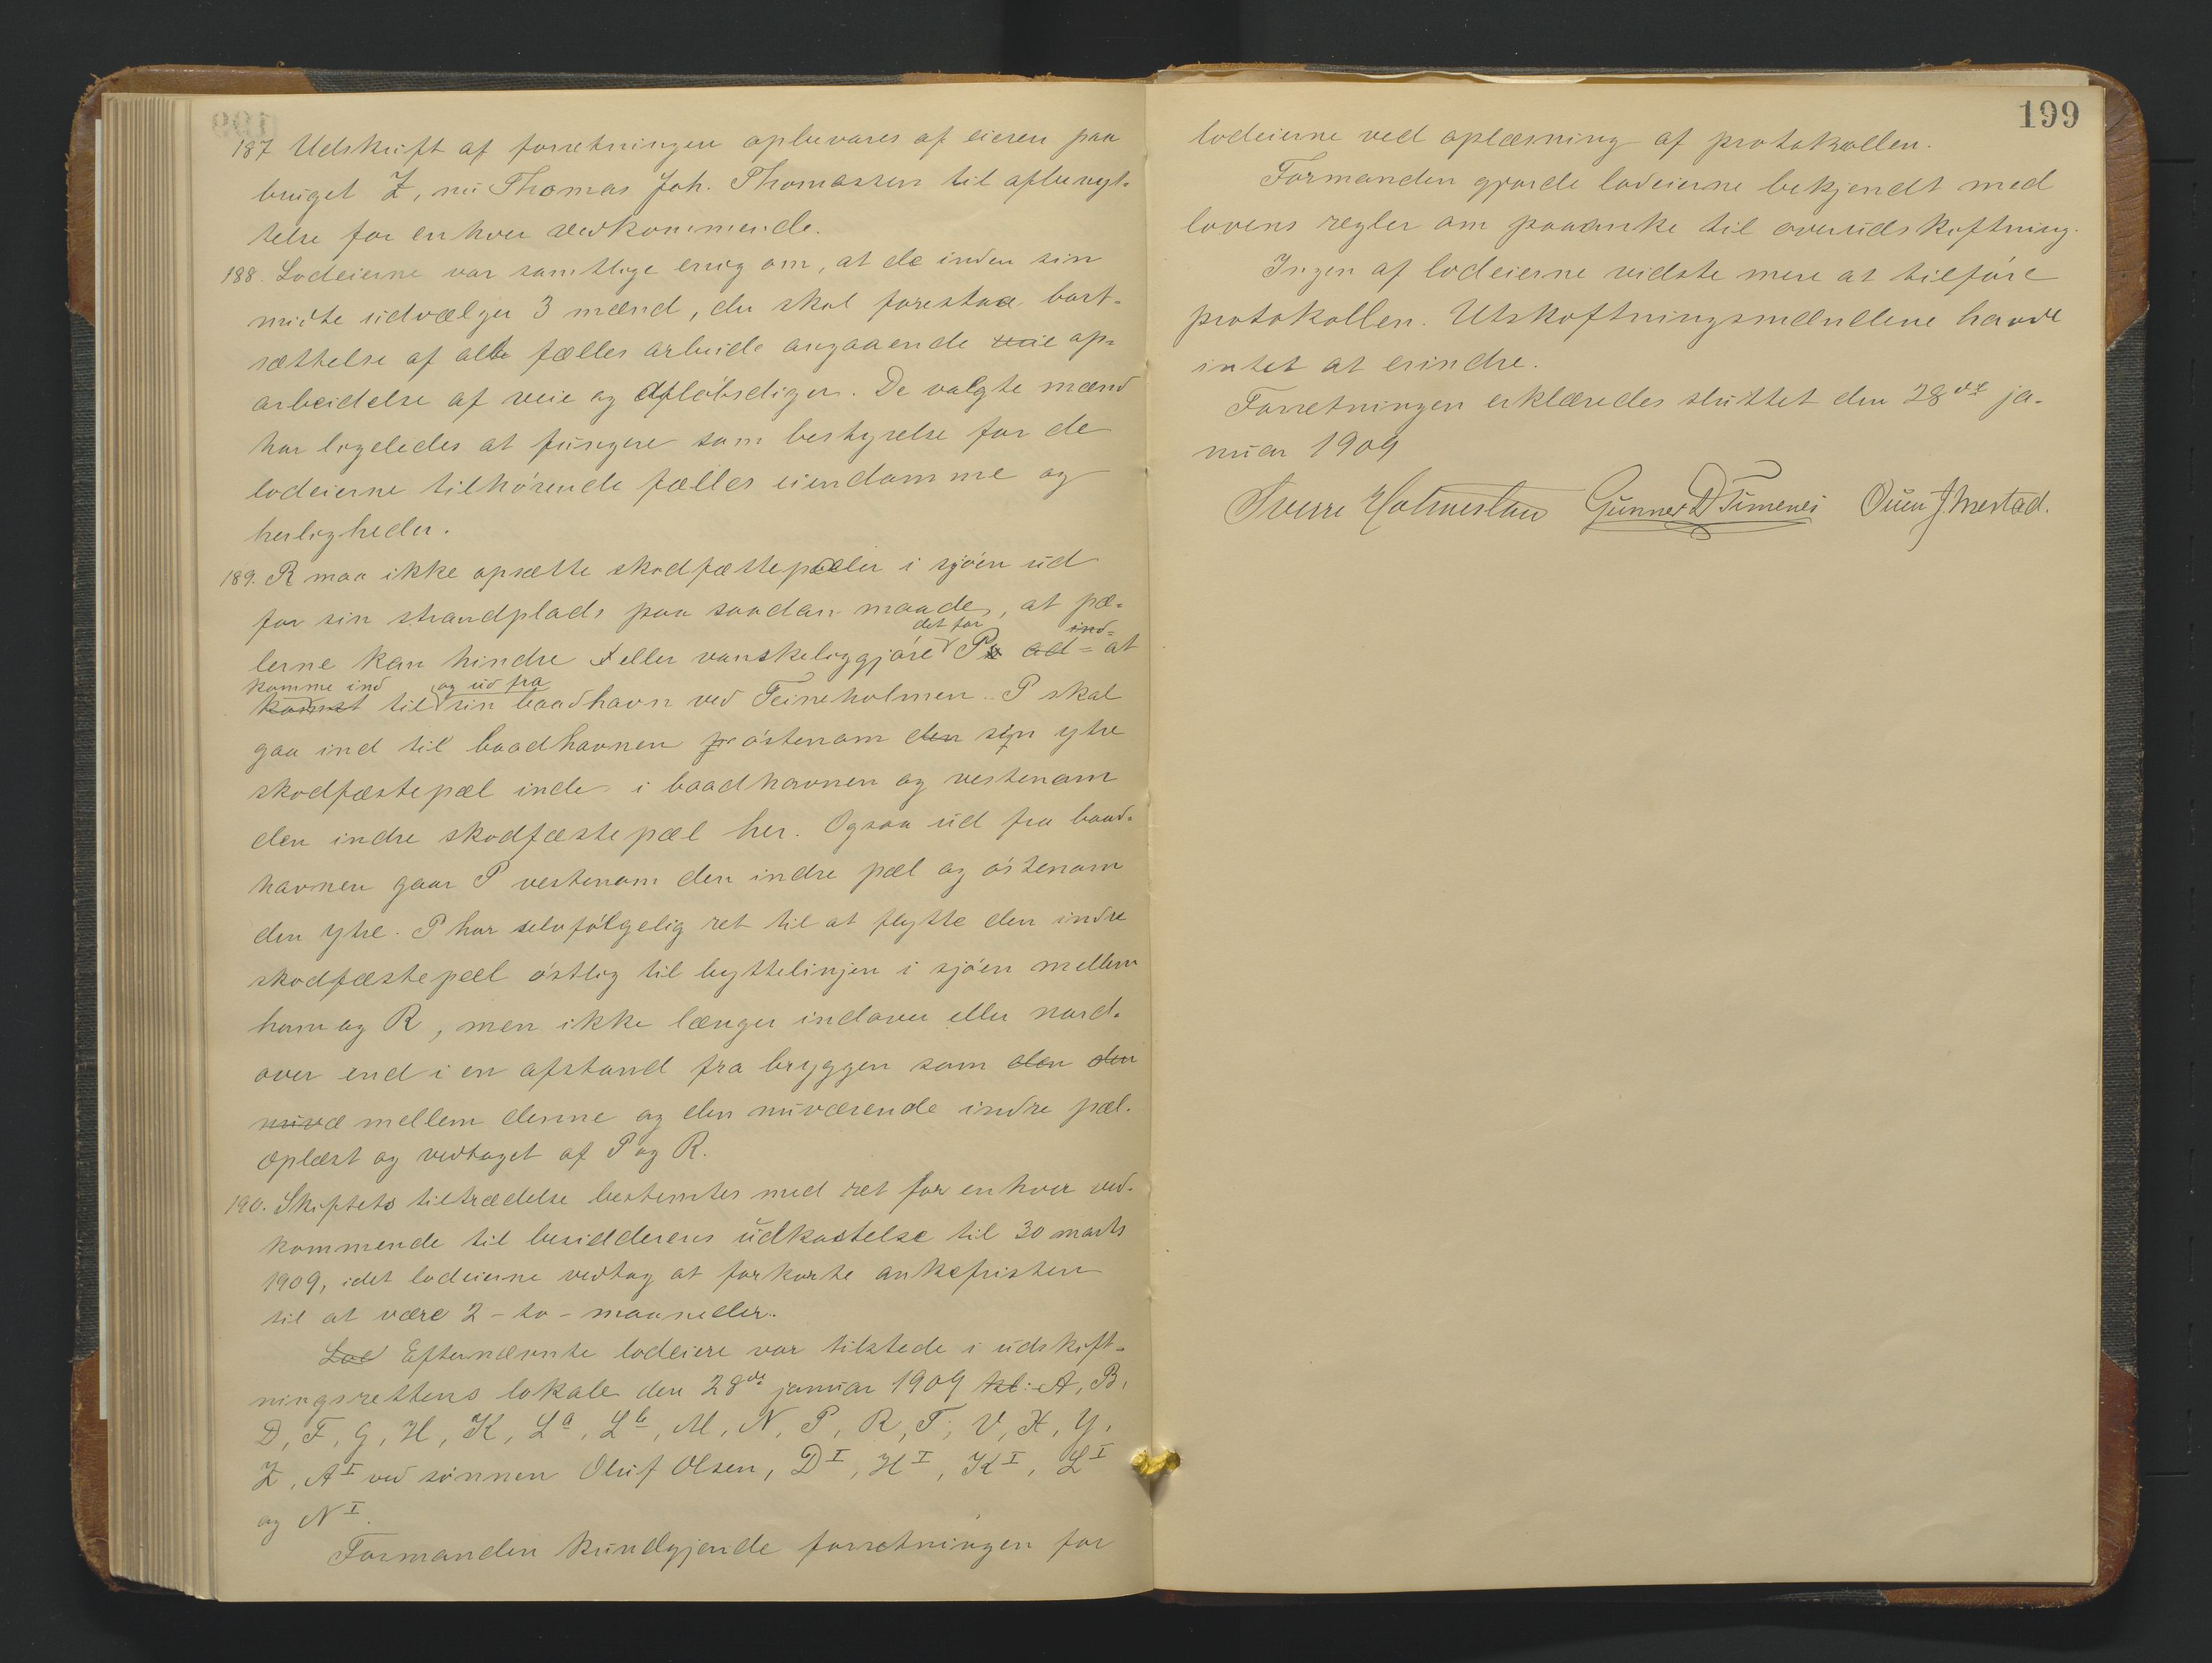 187 Udskrift af forretningen opbevares af eieren paa
bruget Z, nu Thomas Joh. Thomassen til afbenyt-
telse for enhver vedkommende.
188. Lodeierne var samtlige enig om, at de inden sin
midte udvælger 3 mænd, der skal forestaa bort-
sættelse af alle fælles arbeide angaaende veie op-
arbeidelse af veie og afløbsdiger. De valgte mænd
har ligeledes at fungere som bestyrelse for de
lodeierne tilhørende fælles eiendomme og
herligheder.
189. R maa ikke opsætte skodfæstepæler i sjøen ud
for sin strandplads paa saadan maade, at pæ-
lerne kan hindre eller vanskeliggjøre det for P ad- ind- at
komme ind komst til og ud fra sin baadhavn ved Teineholmen. P skal
gaa ind til baadhavnen østenom den sin ytre
skodfæstepæl inde i baadhavnen og vestenom
den indre skodfæstepæl her. Ogsaa ud fra baad-
havnen gaar P vestenom den indre pæl og østenom
den ytre. P har selvfølgelig ret til at flytte den indre
skodfæstepæl østlig til byttelinjen i sjøen mellem
ham og R, men ikke længer indover eller nord-
over end i en afstand fra bryggen som den den
nuvæ mellem denne og den nuværende indre pæl.
Oplæst og vedtaget af P og R.
190. Skiftets tiltrædelse bestemtes med ret for enhver ved-
kommende til besidderens udkastelse til 30 marts
1909, idet lodeierne vedtog at forkorte ankefristen
til at være 2 - to - maaneder.
Lod Efternævnte lodeiere var tilstede i udskift-
ningsrettens lokale den 28de januar 1909 kl: A, B,
D, F, G, H, K, La, Lb, M, N, P, R, T, V, X, Y,
Z, AI ved sønnen Oluf Olsen, DI, HI, KI, LI
og NI.
Formanden kundgjorde forretningen for
199
lodeierne ved oplæsning af protokollen.
Formanden gjorde lodeierne bekjendt med
lovens regler om paaanke til overudskiftning.
Ingen af lodeierne vidste mere at tilføre
protokollen. Utskiftningsmændene havde
intet at erindre.
Forretningen erklæredes sluttet den 28de ja-
nuar 1909
Sverre Holmestau Gunner D Timenes Ouen J Mestad.